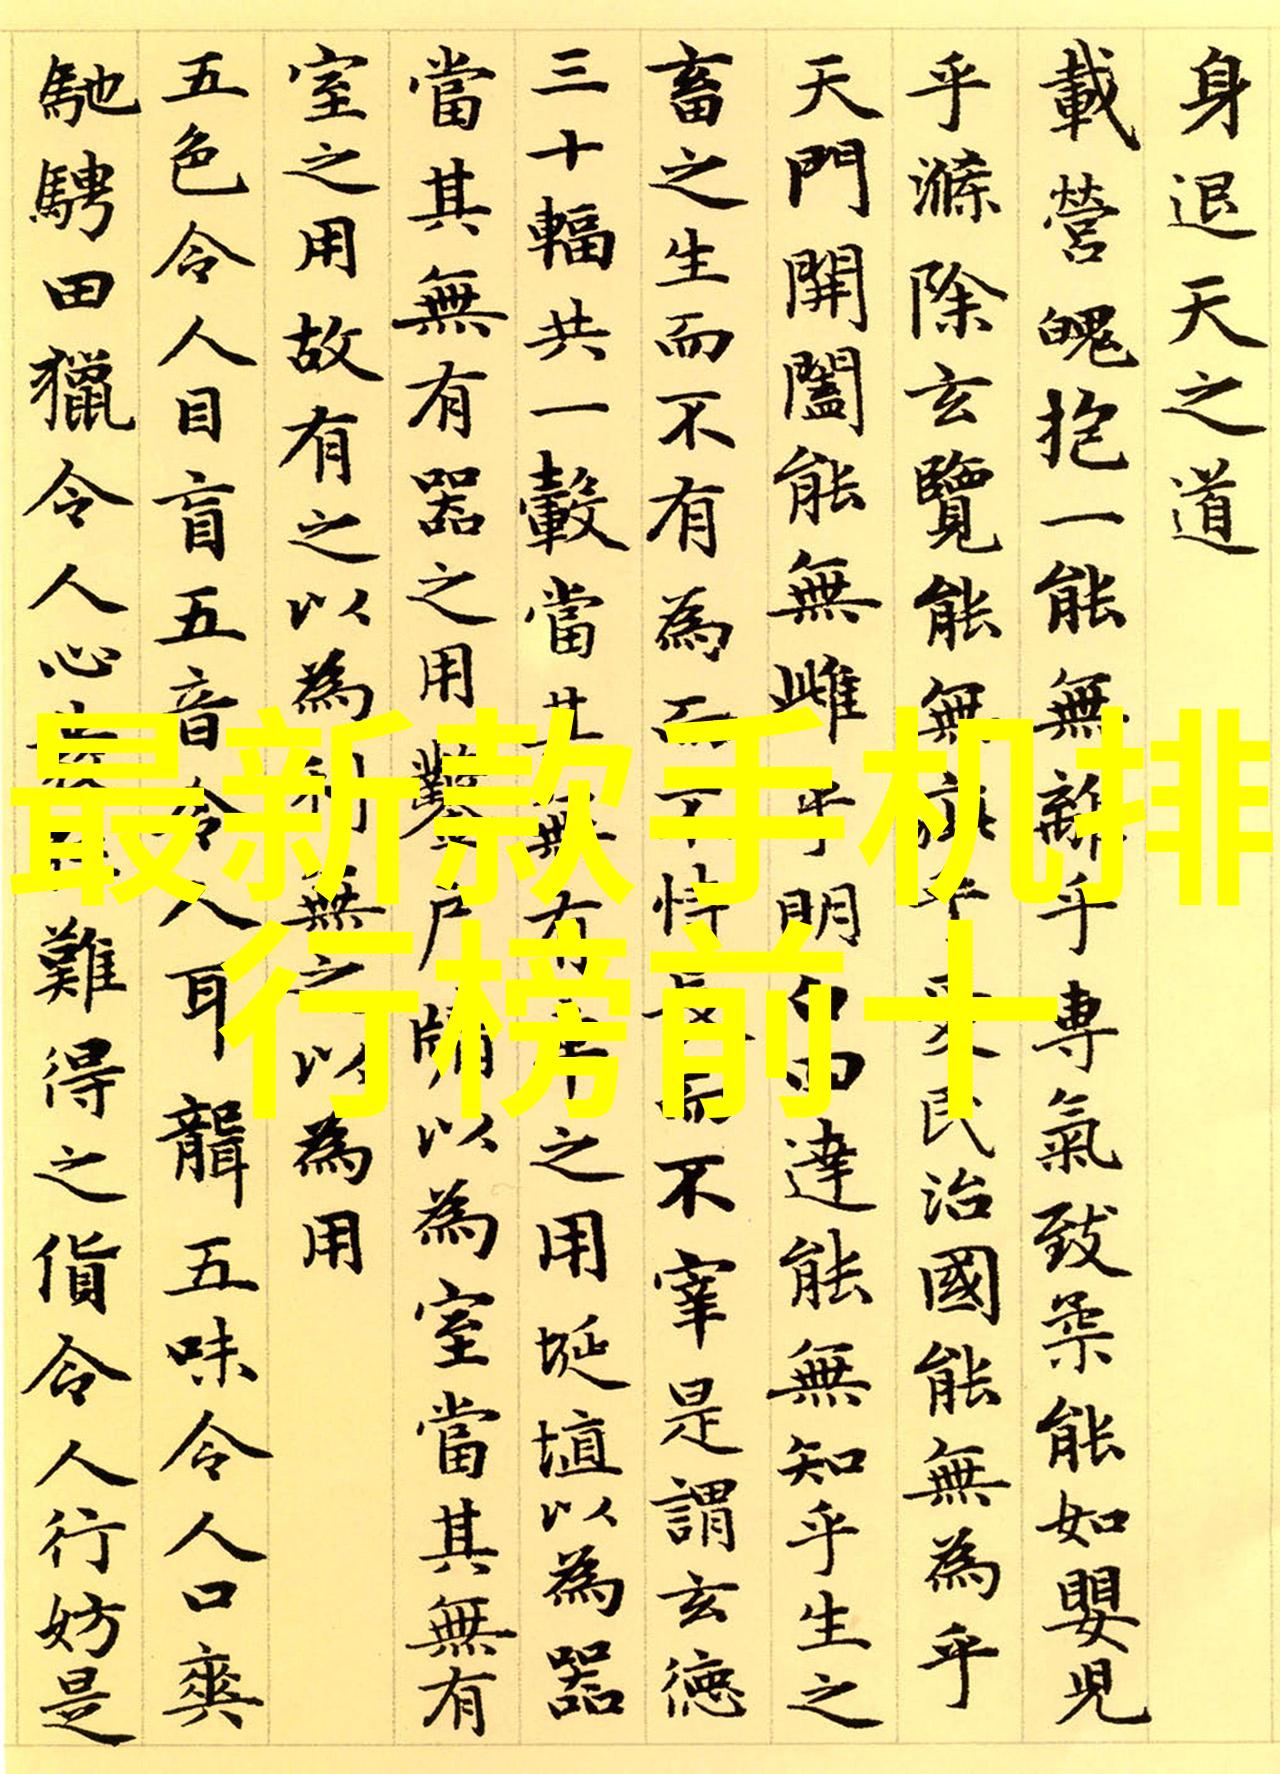 身退天之道
載營魄抱一能無離乎專氣致柔能如嬰兒
乎滌除玄覽能無疵乎愛民治國能無為乎
天門開闔能無雌乎明白四達能無知乎生之
畜之生而不有為而不恃長而不宰是謂玄德
三十輻共一轂當其無有車之用埏埴以為器
當其無有器之用鑿戶牖以為室當其無有
室之用故有之以為利無之以為用
五色令人目盲五音令人耳聾五味令人口爽
馳騁田獵令人心難得之貨令人行妨是
最新款手机排
行榜前十